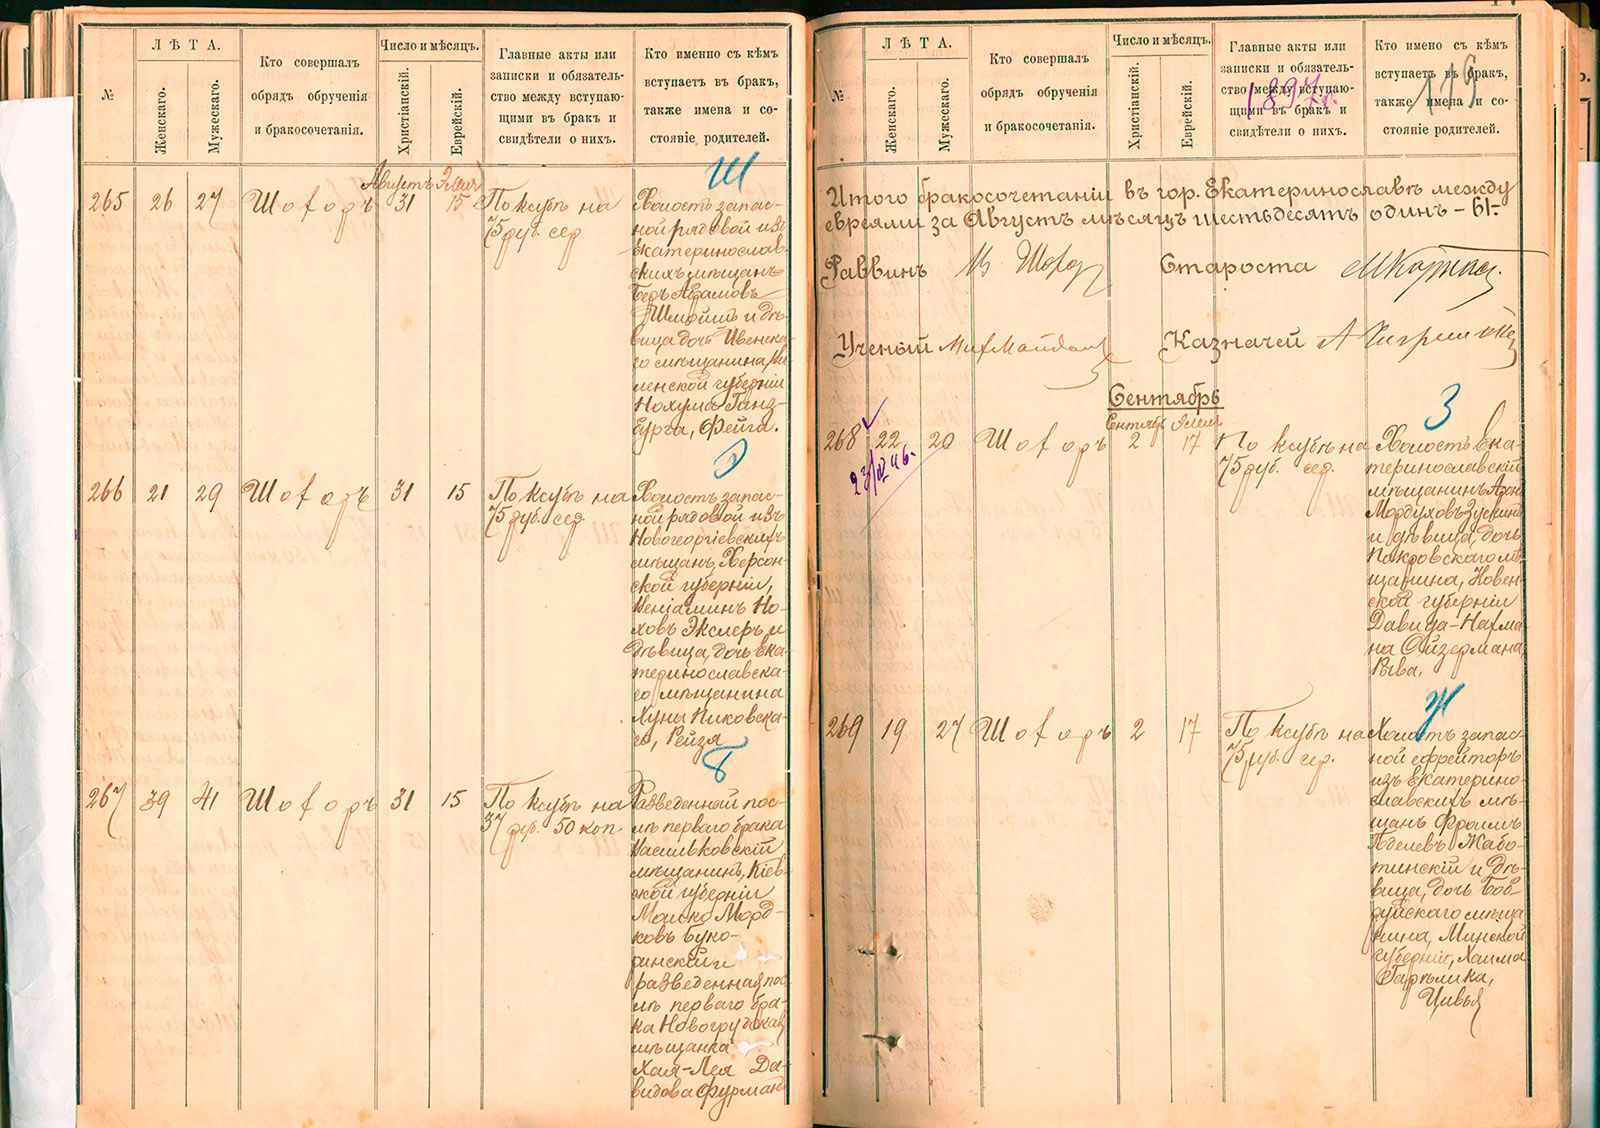 №
ЛѢТА.
Женскаго.
Мужескаго.
Кто совершалъ
обрядъ обрученія
и бракосочетанія.
Число и мѣсяцъ.
Христіанскій.
Еврейскій.
Главные акты или
записки и обязатель-
ство между вступаю-
щими въ бракъ и
свидѣтели о нихъ.
Кто именно съ кѣмъ
вступаетъ въ бракъ,
также имена и со-
стояніе родителей.
Ш
Августъ Элелъ
265 26 27 Шоforъ 31 15
По ксубѣ на
75 руб. сер
Холостъ запас-
ной рядовой изъ
Екатеринослав-
скихъ мѣщанъ
Беръ Абрамовъ
и дѣ-
вица дочь Ивенска-
го мѣщанина Ви-
ленской губерніи
Нохума Ганз-
бурга, Фейга.
Э
266 21 29 Шоforъ 31 15
По ксубѣ на
75 руб. сер.
Холостъ запас-
ной рядовой изъ
Новогеоргіевскихъ
мѣщанъ, Херсон-
ской губерніи,
Веніаминъ Но-
ховъ Экслеръ и
дѣвица, дочь Ека-
теринославска-
го мѣщанина
Хуны Пиковска-
го, Рейзя
Б
267 39 41 Шоforъ 31 15
По ксубѣ на
37 руб. 50 коп
Разведенный пос-
лѣ перваго брака
Васильковскій
мѣщанинъ, Кіев-
ской губерніи
Мошко Морд-
ковъ Буко-
динскій и
разведенная пос
лѣ перваго бра-
ка Новогрудская
мѣщанка
Хая-Лея Да-
видова Фурманъ
№
ЛѢТА.
Женскаго.
Мужескаго.
Кто совершалъ
обрядъ обрученія
и бракосочетанія.
Число и мѣсяцъ.
Христіанскій.
Еврейскій.
Главные акты или
записки и обязатель-
ство между вступаю-
щими въ бракъ и
свидѣтели о нихъ.
1897 г.
Кто имено съ кѣмъ
вступаетъ въ бракъ,
также имена и со-
стояніе родителей.
119
Итого бракосочетаніи въ гор. Екатеринославѣ между
евреями за Августъ мѣсяцъ шестьдесятъ одинъ – 61.
Раввинъ Староста
Ученый Казначей
Сентябрь
З
Сентябрь Элелъ
268 22 20 Шоforъ 2 17
По ксубѣ на
75 руб. сер.
Холостъ Ека-
теринославскій
мѣщанинъ Арон
Мордуховъ
и дѣвица, дочь
Покровскаго мѣ
щанина, Ковен
ской губерніи
Давида-Нахма-
на Айзермана,
Рыва.
Ж
269 19 27 Шоforъ 2 17
По ксубѣ на
75 руб. сер.
Холостъ запас
ной ефрейторъ
изъ Екатерино-
славскихъ мѣ-
щанъ Фроимъ
Жабо-
тинскій и дѣ-
вица, дочь Боб-
руйскаго мѣща
нина, Минской
губерніи, Хаима
Гарелика,
Цивья